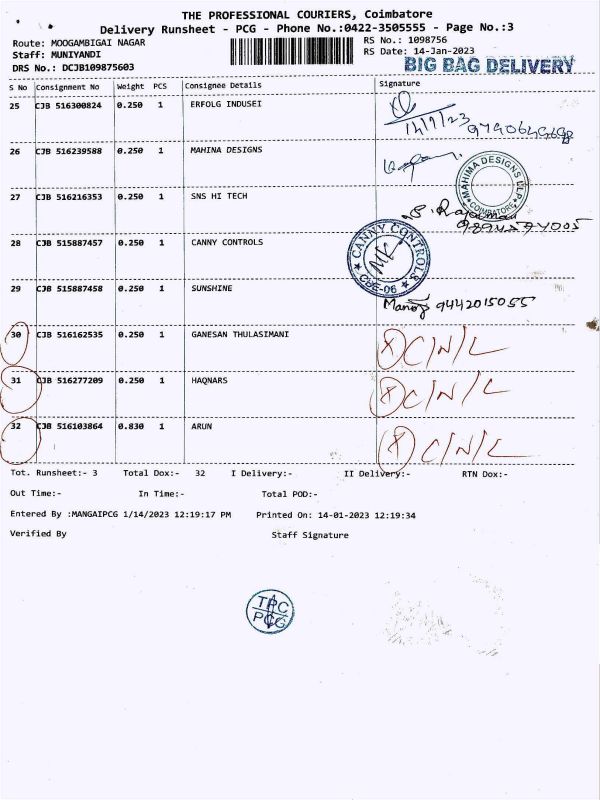 THE PROFESSIONAL COURIERS, Coimbatore
Delivery Runsheet - PCG - Phone No.:0422-3505555 - Page No.:3
Route: MOOGAMBIGAI NAGAR RS No.: 1098756
Staff: MUNIYANDI RS Date: 14-Jan-2023
DRS No.: DCJB109875603 BIG BAG DELIVERY
S No Consignment No Weight PCS Consignee Details Signature
25 CJB 516300824 0.250 1 ERFOLG INDUSEI
14/1/23
26 CJB 516239588 0.250 1 MAHINA DESIGNS
MAHIMA DESIGNS LLP
COIMBATORE
27 CJB 516216353 0.250 1 SNS HI TECH
28 CJB 515887457 0.250 1 CANNY CONTROLS
CANNY CONTROLS
CBE-06
29 CJB 515887458 0.250 1 SUNSHINE
Manoj 9442015055
30 CJB 516162535 0.250 1 GANESAN THULASIMANI X C/N/L
31 CJB 516277209 0.250 1 HAQNARS X C/N/L
32 CJB 516103864 0.830 1 ARUN X C/N/L
Tot. Runsheet:- 3 Total Dox:- 32 I Delivery:- II Delivery:- RTN Dox:-
Out Time:- In Time:- Total POD:-
Entered By :MANGAIPCG 1/14/2023 12:19:17 PM Printed On: 14-01-2023 12:19:34
Verified By Staff Signature
TPC
PCG